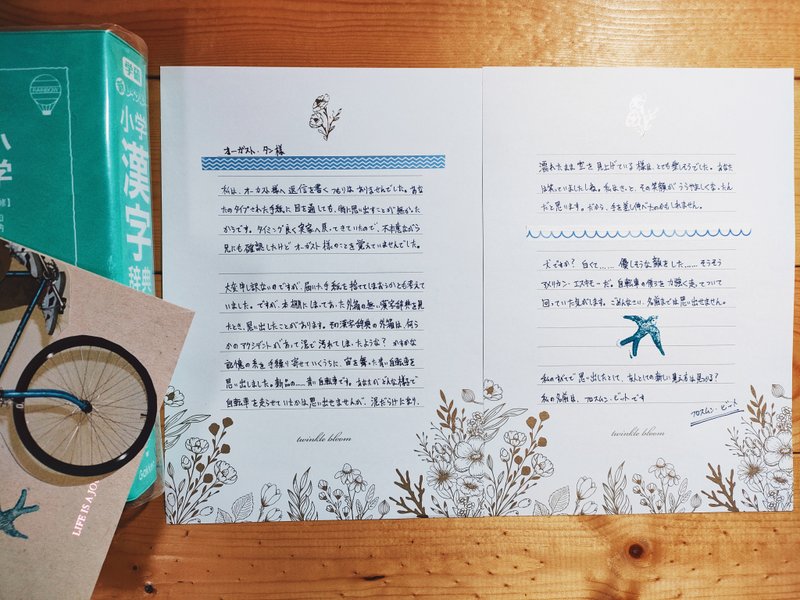 学研
小学
漢字
辞典
RAINBOW
LIFE IS A JO
オーガスト・タン様
私は、オーガスト様へ返信を書くつもりはありませんでした。あな
たのタイプされた手紙に目を通しても、特に思い出すことが無かった
からです。タイミング良く実家へ戻ってきていたので、不本意ながら
兄にも確認したけどオーガスト様のことを覚えていませんでした。
大変申し訳ないのですが、届いた手紙を捨ててしまおうかとも考えて
いました。ですが、本棚にしまってあった外箱の無い漢字辞典を見
たとき、思い出したことがあります。その漢字辞典の外箱は、何ら
かのアクシデントがあって泥で汚れてしまったような？かすかな
記憶の糸を手繰り寄せていくうちに、宙を舞った青い自転車を
思い出しました。新品の……青い自転車です。あなたがどんな様子で
自転車を走らせていたかは思い出せませんが、泥だらけになり、
twinkle bloom
濡れたまま空を見上げている様は、とても楽しそうでした。あなた
は笑っていましたしね。私はきっと、その笑顔がうらやましくなったん
だと思います。だから、手を差し伸べたのかもしれません。
犬ですか？白くて……優しそうな顔をした……そうそう
アメリカン・エスキモーだ。自転車の側を全力で強く走ってついて
回っていた気がします。ごめんなさい、名前までは思い出せません。
私のおかげで思い出したとして、友人としての新しい見え方は見つける？
私の名前は、ブロスムン・ビートです
ブロスムン・ビート
twinkle bloom